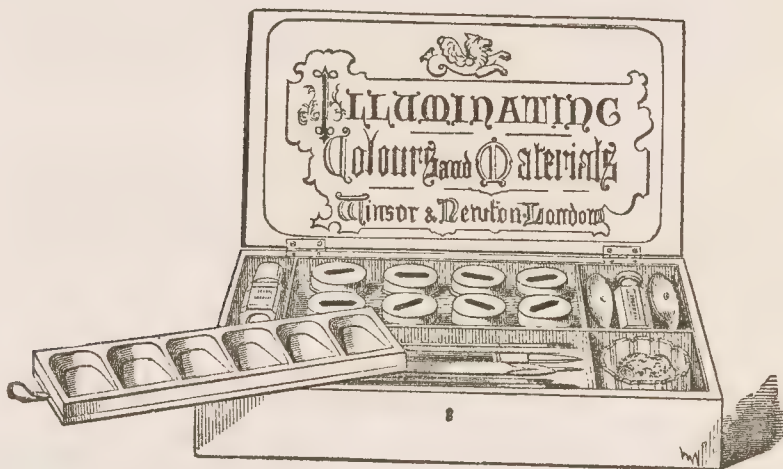 ILLUMINATING
Colours and Materials
Winsor & Newton London